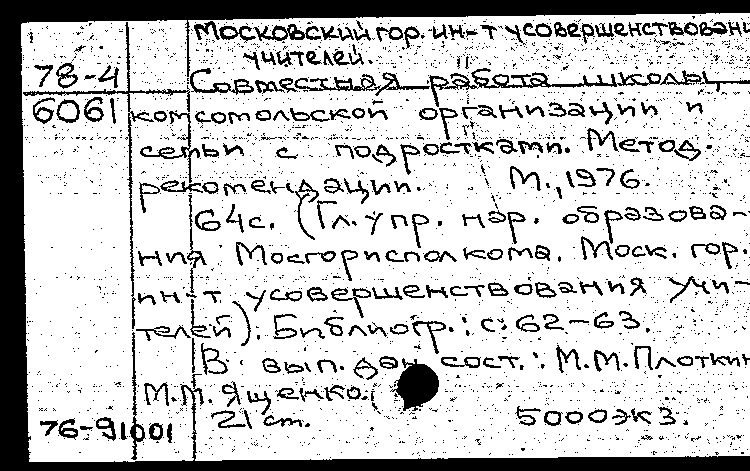 Московский гор. ин-т усовершенствовани
учителей.
78-4 Совместная работа школы,
6061 комсомольской организации и
семьи с подростками. Метод.
рекомендации. М., 1976.
64с. (Гл. упр. нар. образова-
ния Мосгорисполкома. Моск. гор.
ин-т усовершенствования учи-
телей). Библиогр.: с. 62-63.
В вып. дан сост.: М.М. Плоткин
М.М. Ященко.
21 см. 5000 экз.
76-91001